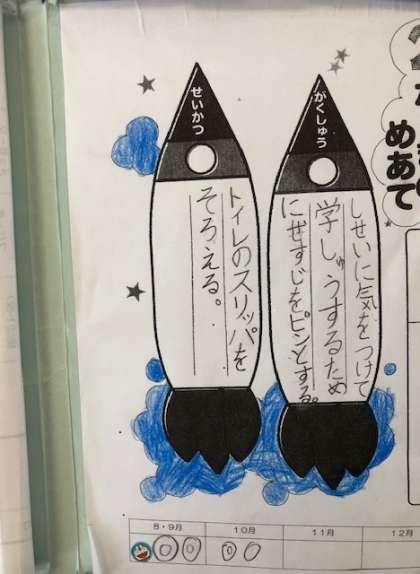 めあて
がくしゅう
しせいに気をつけて
学しゅうするため
にせすじをピンとする。
せいかつ
トイレのスリッパを
そろえる。
8・9月
10月
11月
12月